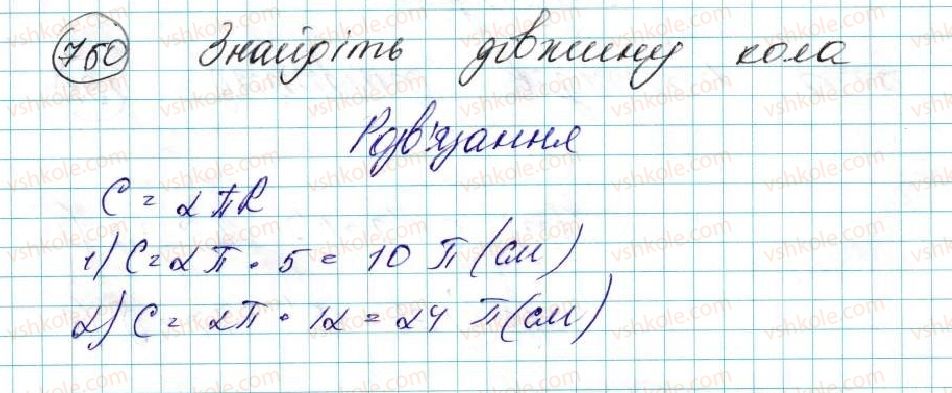 750 Знайдіть довжину кола
Розв'язання
C = 2πR
1) C = 2π · 5 = 10 π (см)
2) C = 2π · 12 = 24 π (см)